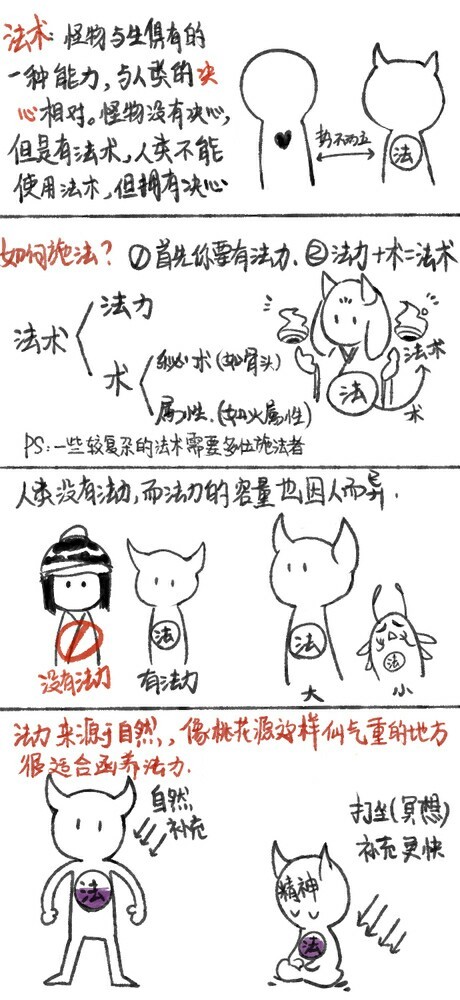 法术：怪物与生俱有的
一种能力，与人类的决
心相对。怪物没有决心，
但是有法术，人类不能
使用法术，但拥有决心
势不两立
法
如何施法？ ①首先你要有法力. ②法力+术=法术
法术
法力
术
秘术(如骨头)
属性.(如火属性)
法
法术
术
PS：一些较复杂的法术需要多位施法者
人类没有法力，而法力的容量也因人而异.
法
法
法
没有法力
有法力
大
小
法力来源于自然，，像桃花源这样仙气重的地方
很适合函养法力.
自然
补充
法
打坐(冥想)
补充更快
精神
法